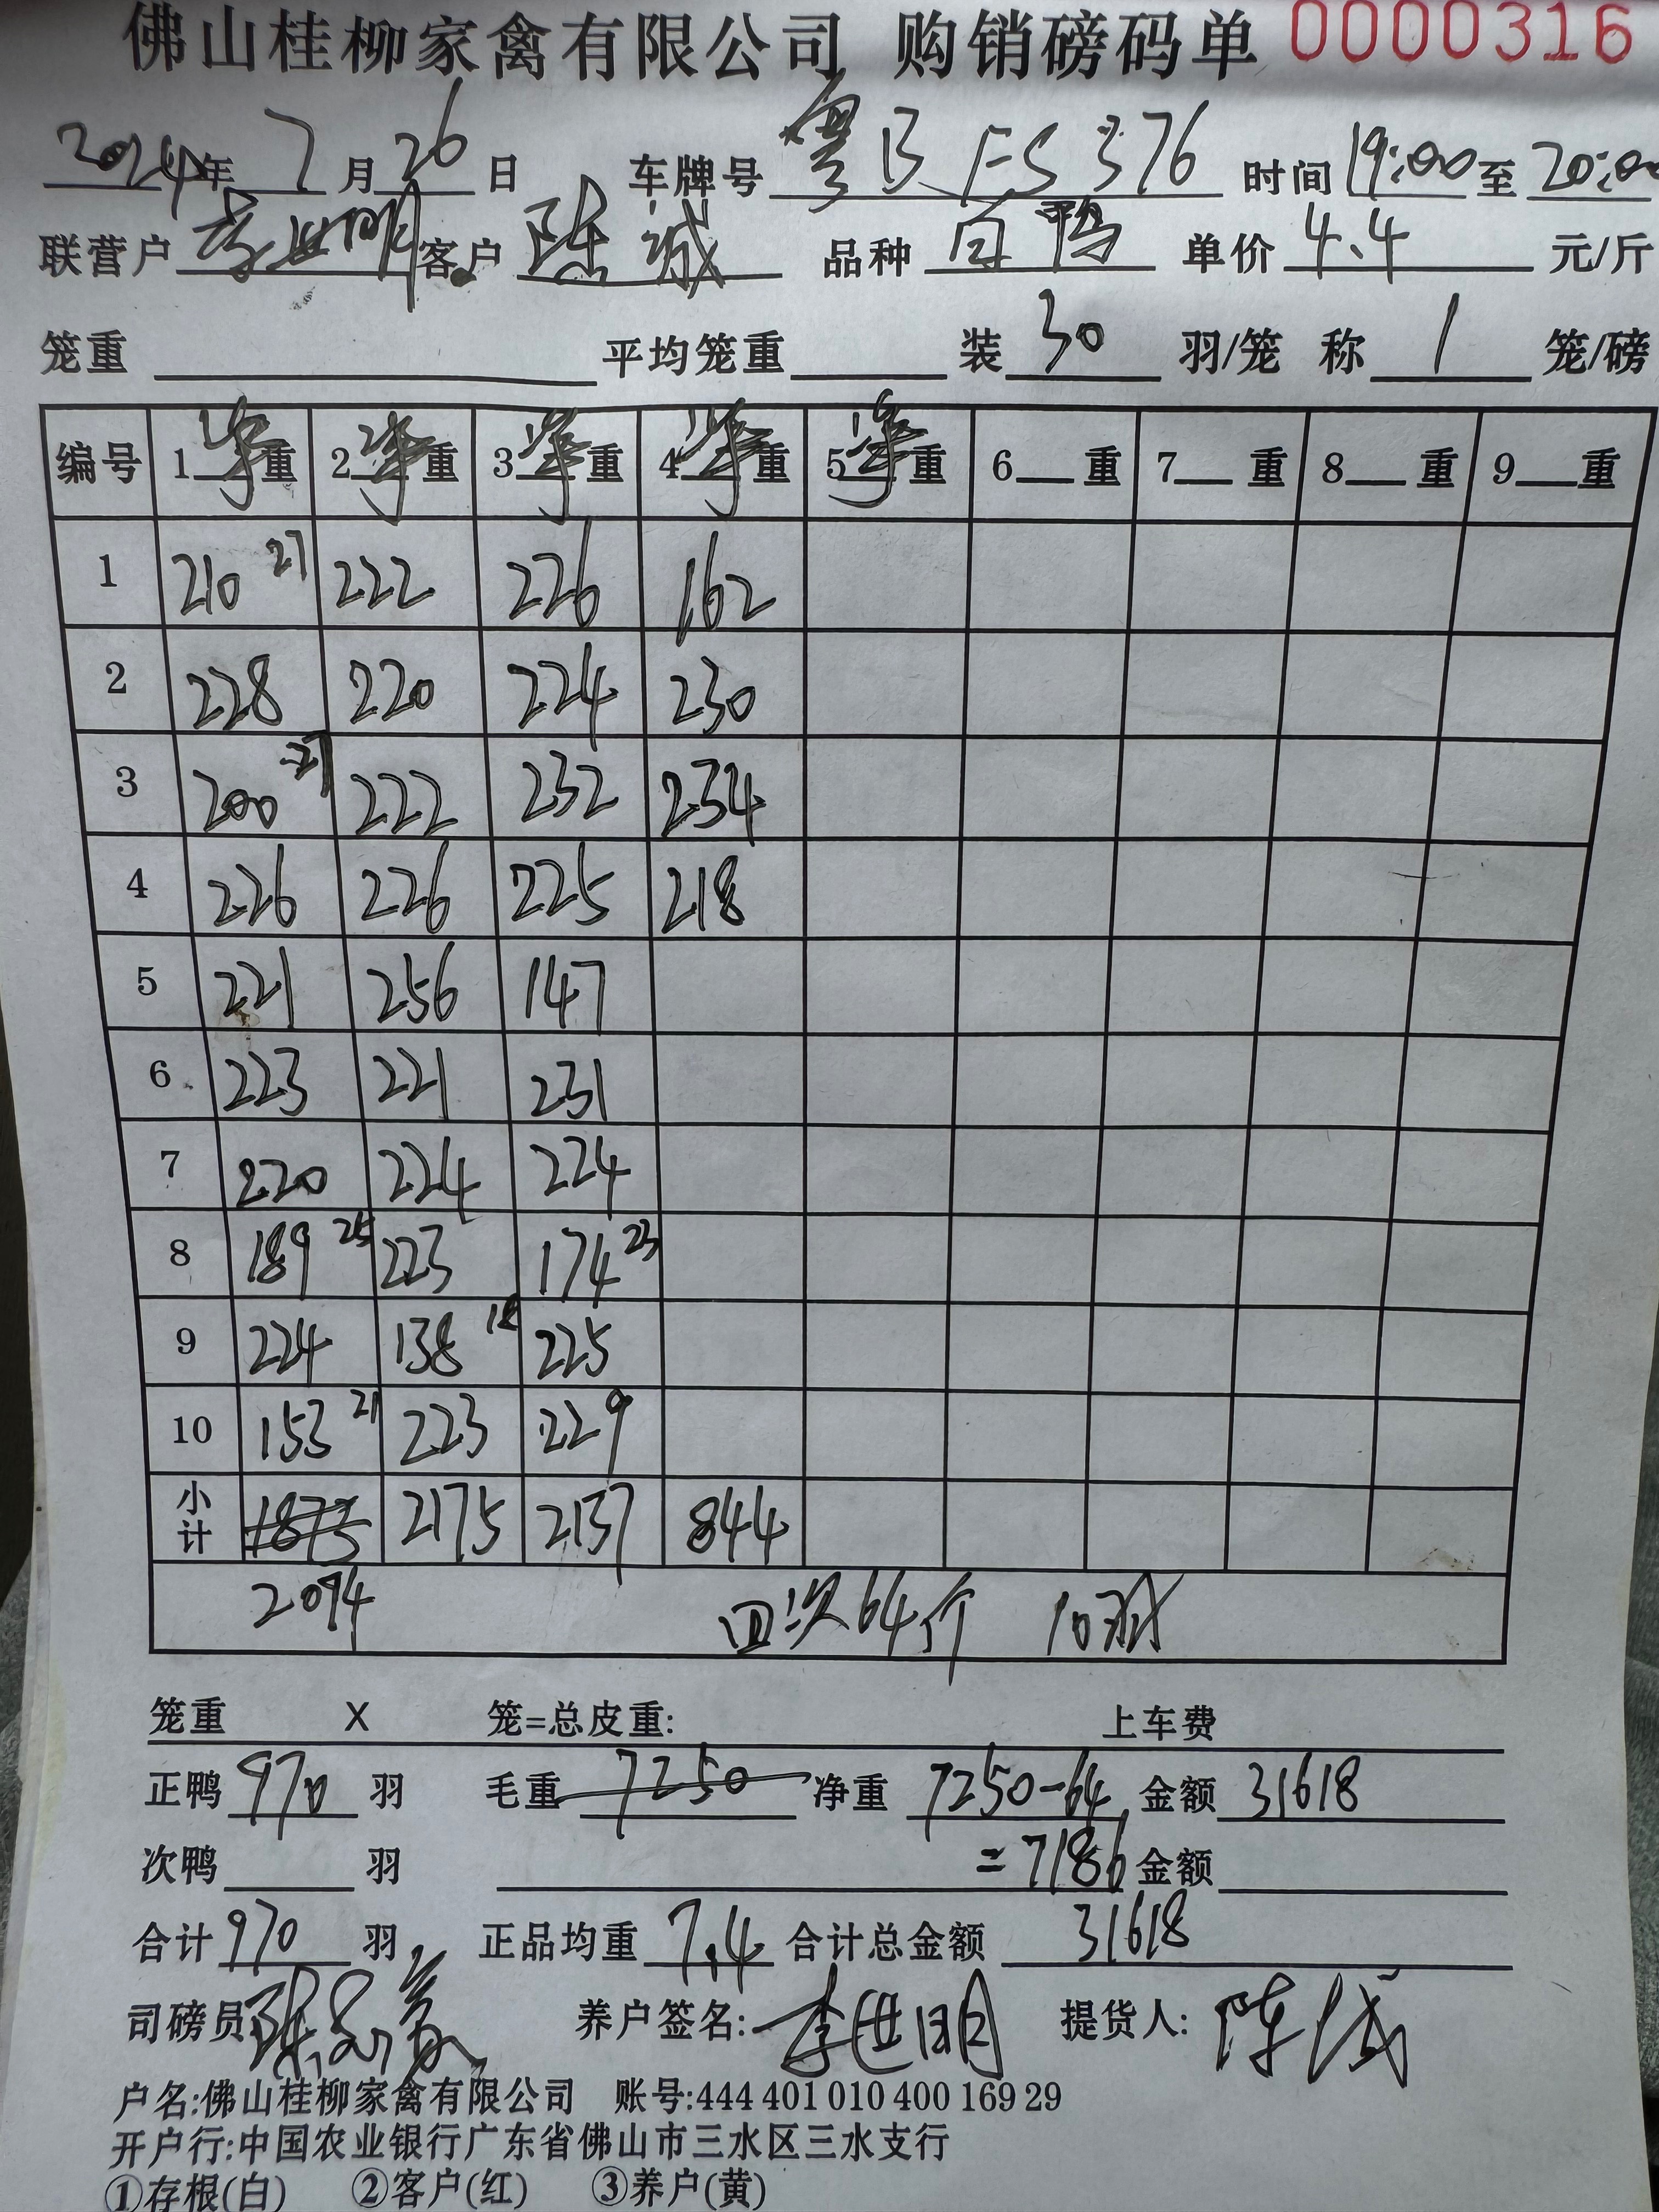 佛山桂柳家禽有限公司 购销磅码单 0000316
2024年 7 月 26 日 车牌号 粤B FS376 时间 19:00 至 20:00
联营户 李世明 客户 陈诚 品种 白鸭 单价 4.4 元/斤
笼重 平均笼重 装 30 羽/笼 称 1 笼/磅
编号 1 单 重 2 单 重 3 单 重 4 单 重 5 单 重 6 重 7 重 8 重 9 重
1 210 27 222 226 162
2 228 220 224 230
3 200 27 222 232 234
4 226 226 225 218
5 221 256 147
6 223 221 231
7 220 224 224
8 189 25 223 174 23
9 224 138 18 225
10 153 21 223 229
小计 1873 2175 2137 844
2094 四次64斤 10羽
笼重 X 笼=总皮重: 上车费
正鸭 970 羽 毛重 7250 净重 7250-64 金额 31618
次鸭 羽 =7186 金额
合计 970 羽 正品均重 7.4 合计总金额 31618
司磅员 养户签名: 李世明 提货人: 陈诚
户名:佛山桂柳家禽有限公司 账号:444 401 010 400 169 29
开户行:中国农业银行广东省佛山市三水区三水支行
①存根(白) ②客户(红) ③养户(黄)